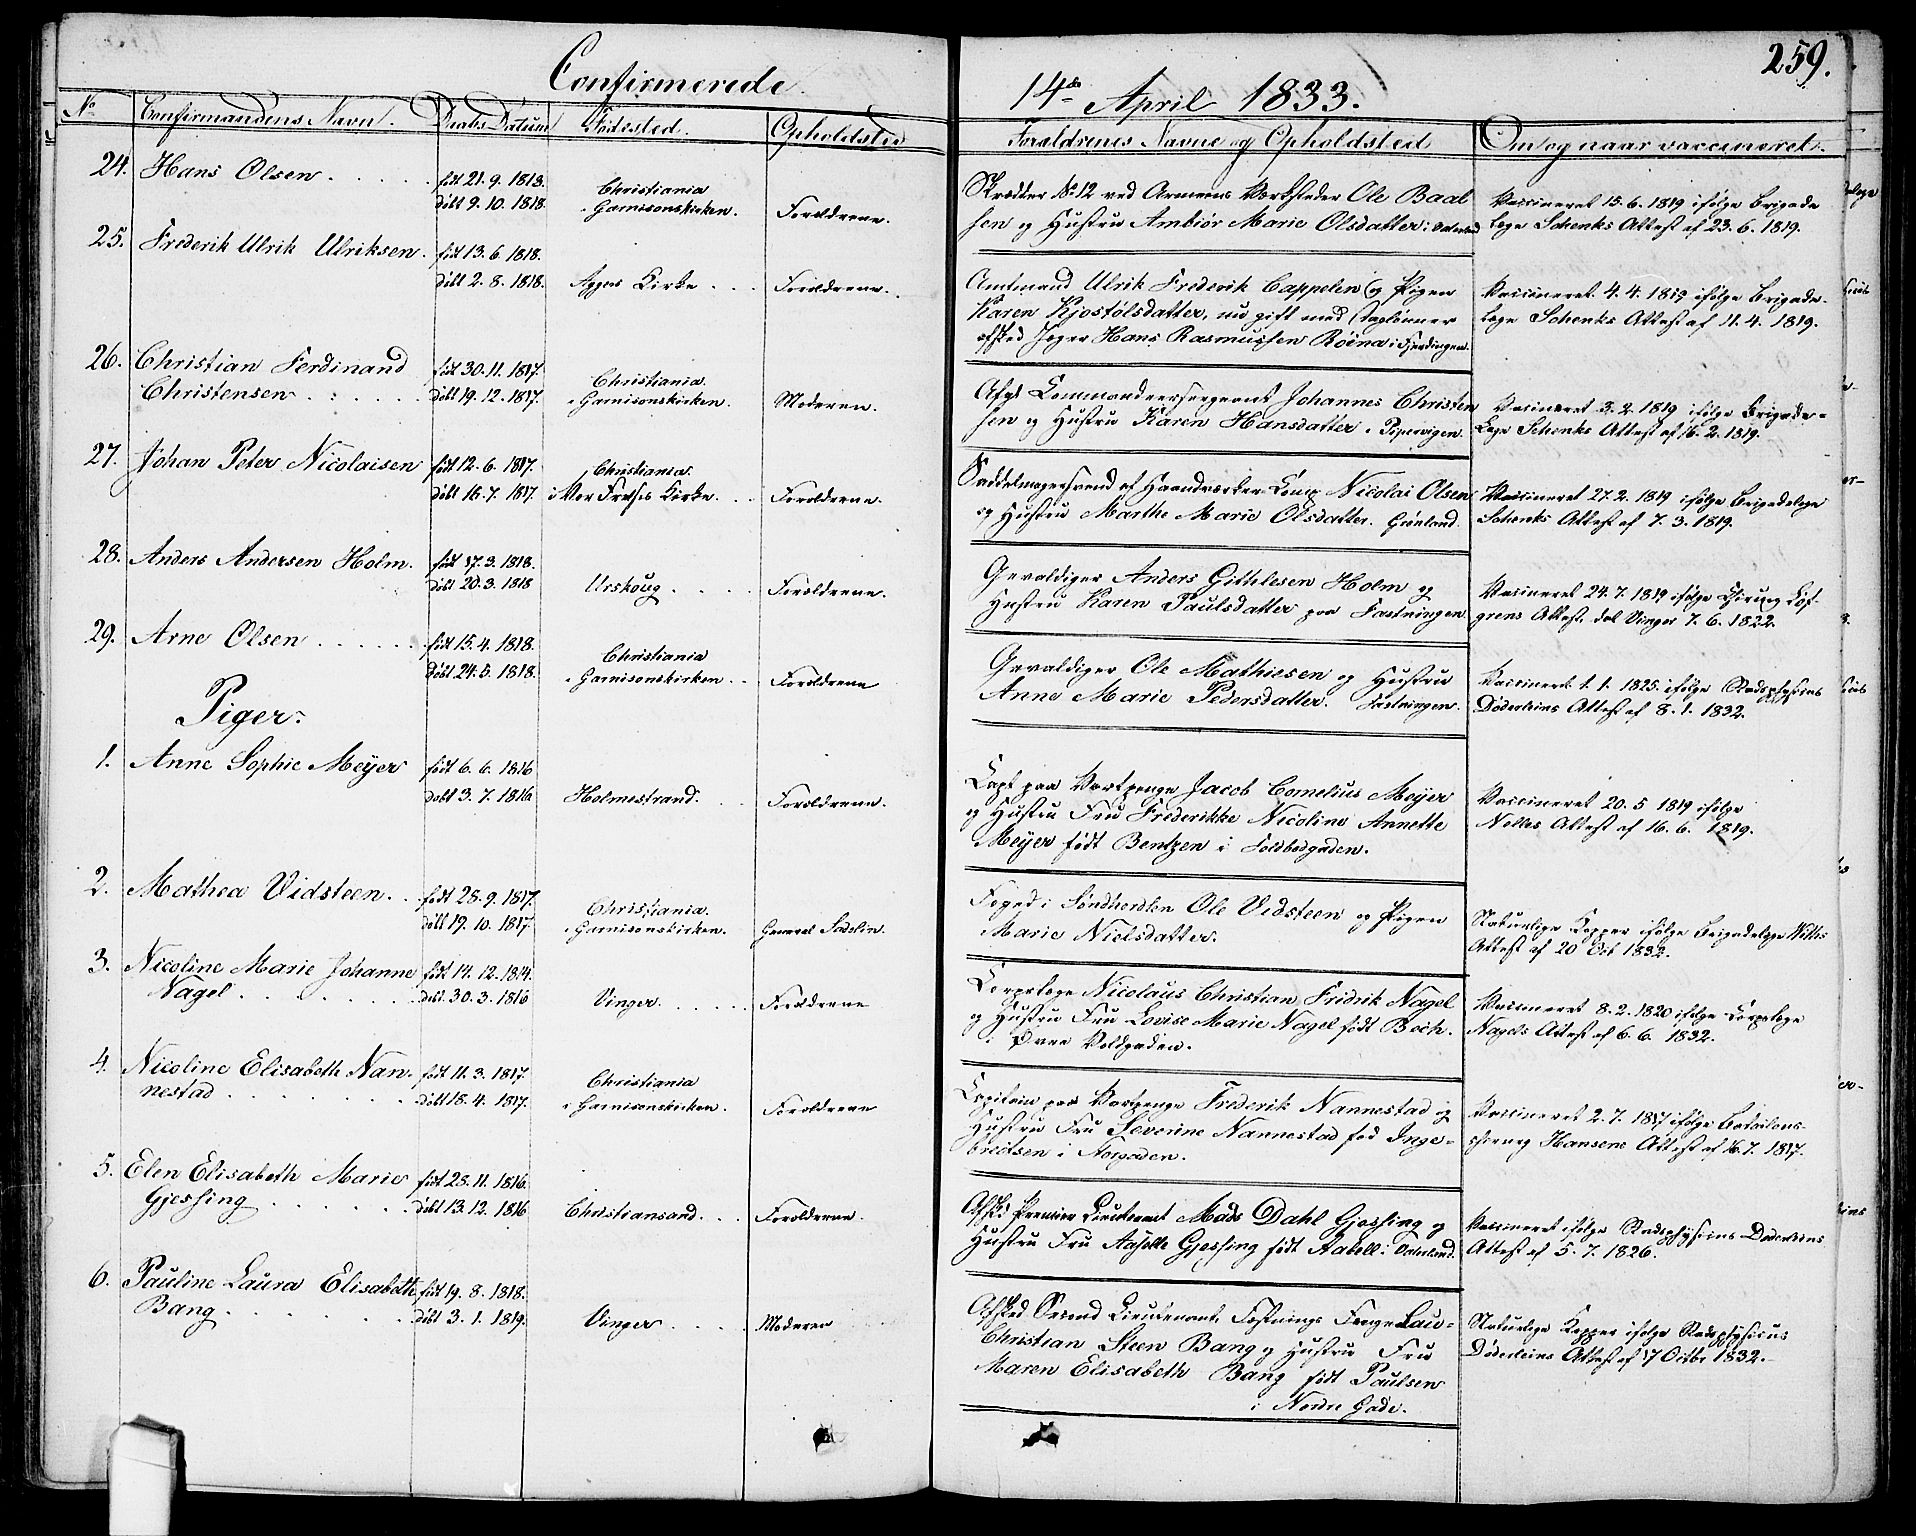 Confirmerede
14de April 1833.
259.
No
Confirmandens Navn.
Daabs Datum
Födested.
Opholdsted
Foreldrenes Navne og Opholdsted
Om og naar vaccineret.
24. Hans Olsen . . . . .
født 21. 9. 1818.
döbt 9. 10. 1818.
Christiania
Garnisonskirken.
Foreldrene.
Skredder No 12 ved Armeens Verksteder Ole Baal
sen og Hustru Ambiör Marie Olsdatter i Vaterland
Vaccineret 15. 6. 1819 ifølge Brigade
lege Schenks Attest af 23. 6. 1819.
25. Frederik Ulrik Ulriksen.
født 13. 6. 1818.
döbt 2. 8. 1818.
Aggers Kirke . . .
Foreldrene.
Amtmand Ulrik Frederik Cappelen og Pigen
Karen Kjostölsdatter, nu gift med Daglönner
afsked Jeger Hans Rasmussen Roena i Fjerdingen.
Vaccineret 4. 4. 1819 ifølge Brigade-
lege Schenks Attest af 11. 4. 1819.
26. Christian Ferdinand
Christensen . . . . .
født 30. 11. 1817.
döbt 19. 12. 1817.
Christiania.
i Garnisonskirken.
Moderen.
Afgl Commandeersergeant Johannes Christen
sen og Hustru Karen Hansdatter i Pipervigen.
Vaccineret 3. 2. 1819 ifølge Brigade-
Lege Schenks Attest af 16. 2. 1819.
27. Johan Peter Nicolaisen
født 12. 6. 1817.
döbt 16. 7. 1817.
Christiania.
i Vor Frelsers Kirke . . .
Foreldrene.
Saddelmagersvend af Haandverker Comp Nicolai Olsen
og Hustru Marthe Marie Olsdatter. Grönland.
Vaccineret 27. 2. 1819 ifølge Brigadelege
Schenks Attest af 7. 3. 1819.
28. Anders Andersen Holm.
født 17. 3. 1818.
döbt 20. 3. 1818
Urskoug . . . .
Foreldrene.
Gevaldiger Anders Githlesen Holm og
Hustru Karen Paulsdatter paa Festningen
Vaccineret 24. 7. 1819 ifølge Chirurg Lof-
grens Attest. dat Vinger 7. 6. 1822.
29. Arne Olsen . . . . .
født 15. 4. 1818.
Döbt 24. 5. 1818.
Christiania
i Garnisonskirken . .
Foreldrene
Gevaldiger Ole Mathiesen og Hustru
Anne Marie Pedersdatter. Festningen.
Vaccineret 1. 1. 1825. ifølge Stadsphysicus
Döderleins Attest af 8. 1. 1832.
Piger.
1. Anne Sophie Meyer
født 6. 6. 1816
döbt 3. 7. 1816
Holmestrand. . .
Foreldrene.
Capt paa Vartpenge Jacob Cornelius Meyer
og Hustru Fru Frederikke Nicoline Annette
Meyer født Bentzen i Toldbodgaden.
Vaccineret 20. 5 1819 ifølge
Nolles Attest af 16. 6. 1819.
2. Mathea Vidsteen . .
født 28. 9. 1817.
döbt 19. 10. 1817.
Christiania.
i Garnisonskirken.
General
Foged i Söndhordlen Ole Vidsteen og Pigen
Marie Nielsdatter.
Naturlige Kopper ifølge Brigadelege
Attest af 20 Oct 1832.
3. Nicoline Marie Johanne
Nagel . . . . . . .
født 14. 12. 1814.
döbt. 30. 3. 1816
Vinger. . . . .
Foreldrene
Corpslege Nicolaus Christian Fridrik Nagel
og Hustru Fru Lovise Marie Nagel født Boch.
i Övre Voldgaden.
Vaccineret 8. 2. 1820 ifølge Corpslege
Nagels Attest af 6. 6. 1832.
4. Nicoline Elisabeth Nan-
nestad . . . . . . .
født 11. 3. 1817.
döbt 18. 4. 1817.
Christiania
i Garnisonskirken.
Foreldrene
Capitain paa Vartpenge Frederik Nannestad og
Hustru Fru Severine Nannestad fød Inge-
bretsen i
Vaccineret 2. 7. 1817 ifølge Batailons-
chirurg Hansens Attest af 16. 7. 1817.
5. Elen Elisabeth Marie
Gjessing . . . . . .
født 23. 11. 1816.
döbt 13. 12. 1816
Christiansand . . .
Foreldrene.
Afsked Premier Lieutenant Mads Dahl Gjessing og
Hustru Fru Gjessing født Aabell i Vaterland.
Vaccineret ifølge Stadsphysicus Döderleins
Attest af 5. 7. 1826.
6. Pauline Laura Elisabeth
Bang . . . . . .
født 19. 8. 1818.
döbt 3. 1. 1819.
Vinger . . . .
Moderen
Afsked Second Lieutenant, Festnings Lau-
Christian Steen Bang og Hustru Fru
Maren Elisabeth Bang født Paulsen
i Nordre Gade.
Naturlige Kopper ifølge Stadsphysicus
Döderleins Attest af 17 Octbr 1832.